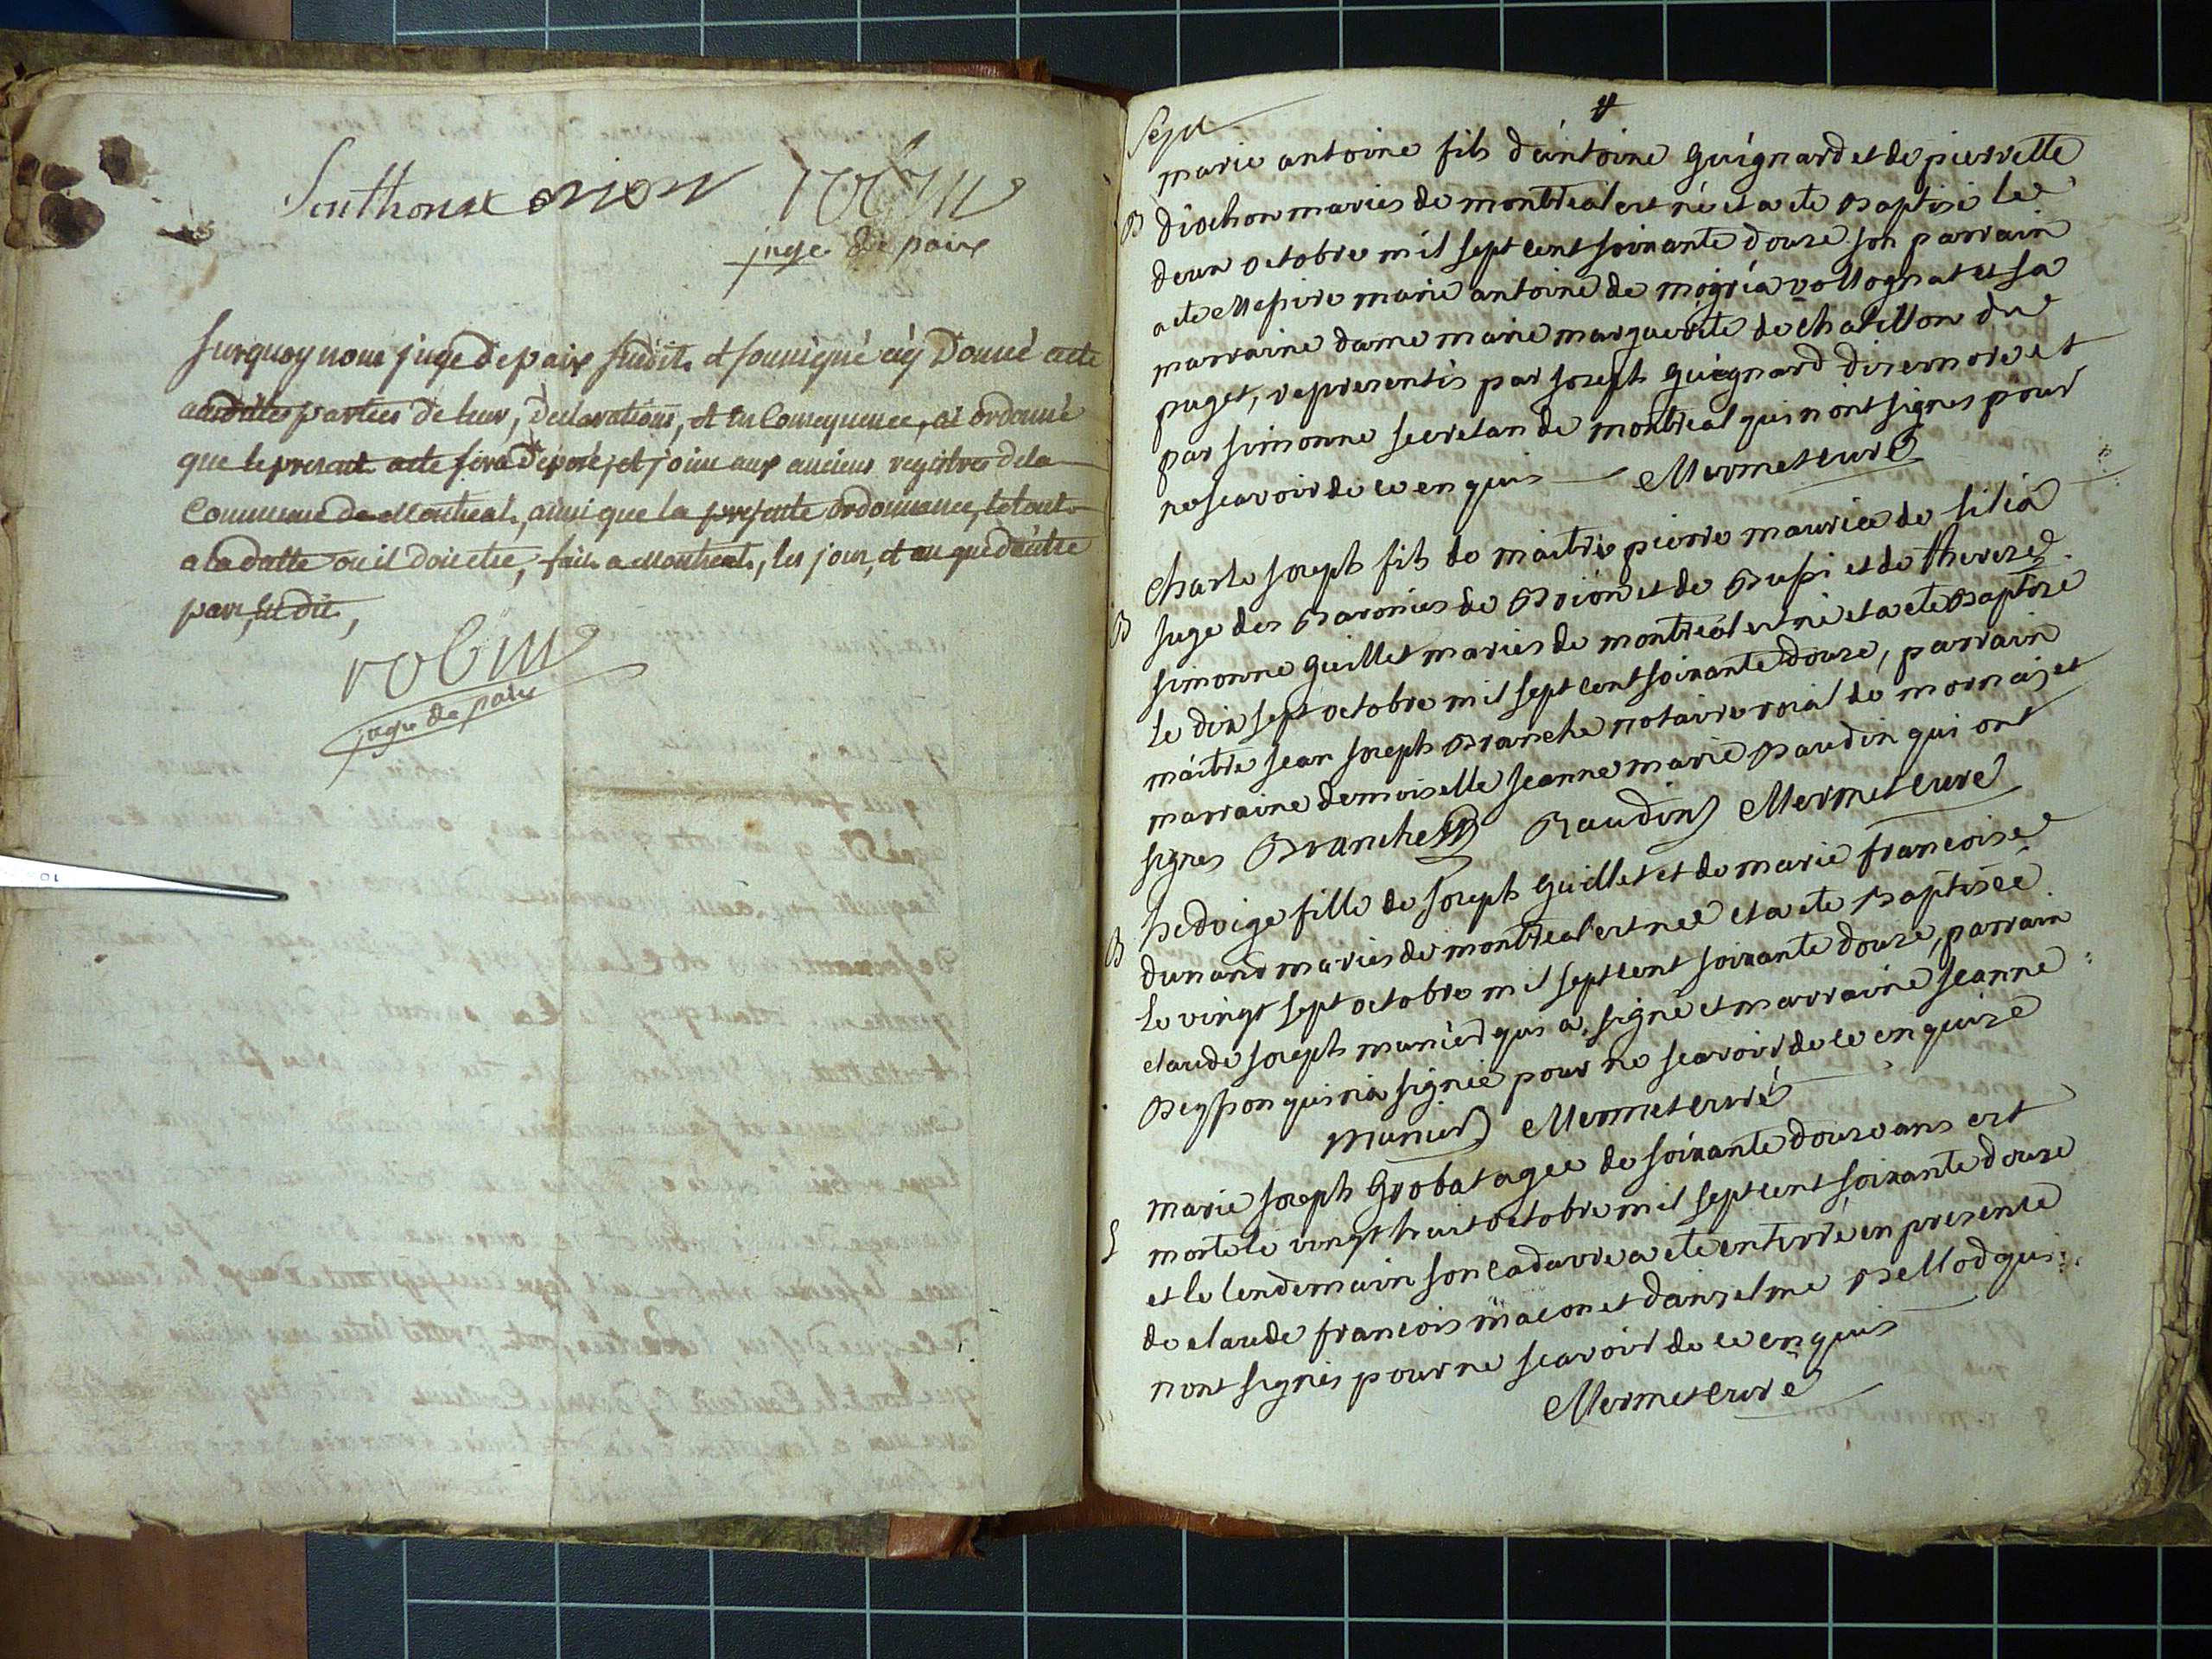 Sonthonax orion robin
juge de paix
surquoy nous juge depaix susdit et soussigné ay Donné acte
ausdittes parties de leur, declarations, et en Consequence, ai ordonné
que le present acte sera deposé, et joint aux anciens registres dela
Commune de Montreal, ainsi que la presente ordonnance, letout
a ladatte ou il doit etre, fait a Montreal, les jour, et an que d'autre
part, sus dit,
robin
juge de paix
sept
marie antoine fils d'antoine guignard et de pierrette
B diochon mariés de montreal est né et a ete Baptisé le
deux octobre mil sept cent soixante douze son parrain
a ete Messire marie antoine de mogria vollognat et sa
marraine dame marie marguerite de chatillon du
puget, representés par joseph guignard disernore et
par simonne secretan de montreal qui n ont signés pour
ne scavoir de ce enquis Mermet curé
charle joseph fils de maitre pierre maurice de lilia
B juge des Baronies de Brion et de Bussi et de therese
simonne guillet mariés de montreal est né et a ete Baptisé
le dix sept octobre mil sept cent soixante douze, parrain
maitre jean joseph Branche notaire roial de mornai, et
marraine demoiselle jeanne marie Baudin qui ont
signés Branche Baudin Mermet curé
hedvige fille de joseph guillet et de marie francoise
B dunand mariés de montreal est neé et a ete Baptisée
le vingt sept octobre mil sept cent soixante douze, parrain
claude joseph munier qui a signé et marraine jeanne
Beysson qui n'a signée pour ne scavoir de ce enquise
munier Mermet curé
marie joseph grobat agée de soixante douze ans est
S morte le vingt huit octobre mil sept cent soixante douze
et le lendemain son cadavre a ete enterré en presence
de claude francois macon et danselme Bellod qui
n ont signés pour ne scavoir de ce enquis
Mermet curé